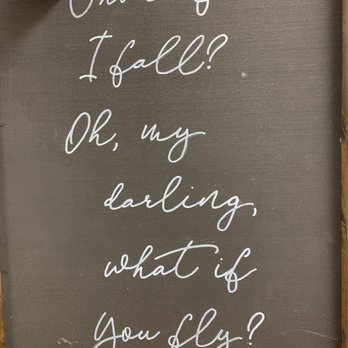 I fall?
Oh, my
darling,
what if
you fly?